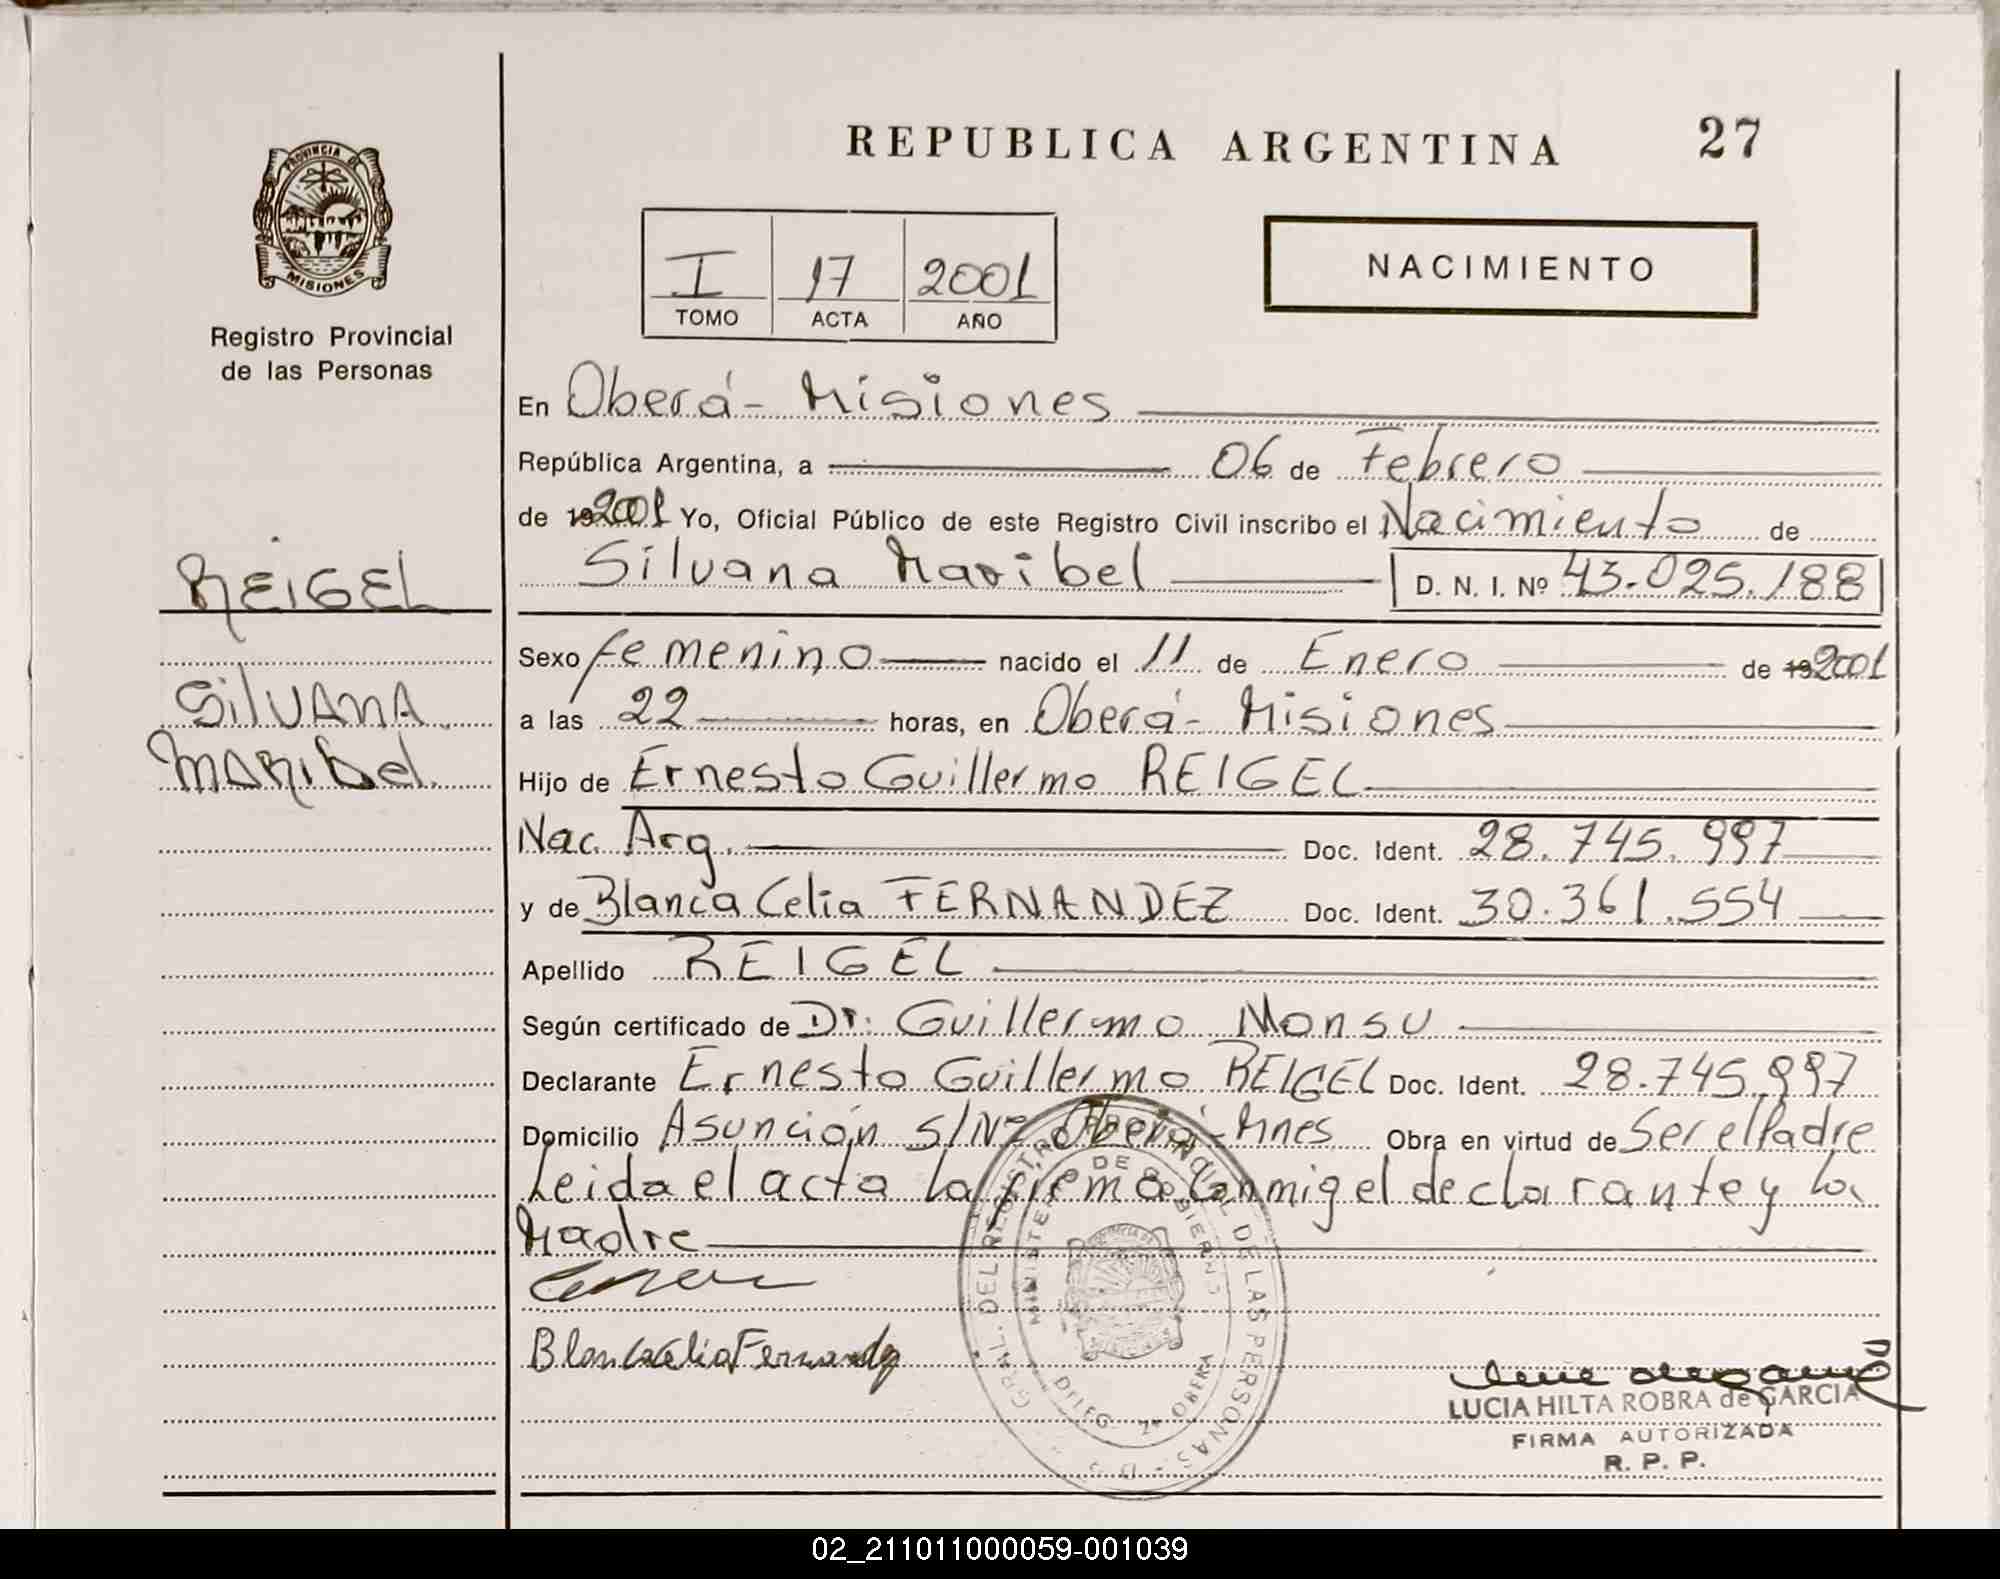 REPUBLICA ARGENTINA
27
PROVINCIA DE
MISIONES
Registro Provincial
de las Personas
I 17 2001
TOMO ACTA AÑO
NACIMIENTO
En Oberá - Misiones
República Argentina, a 06 de Febrero
de 192001 Yo, Oficial Público de este Registro Civil inscribo el Nacimiento de
Silvana Maribel D. N. I. Nº 43.025.188
REIGEL
SilVANA
MARIbel.
Sexo femenino nacido el 11 de Enero de 192001
a las 22 horas, en Oberá - Misiones
Hijo de Ernesto Guillermo REIGEL
Nac. Arg. Doc. Ident. 28.745.997
y de Blanca Celia FERNANDEZ Doc. Ident. 30.361.554
Apellido REIGEL
Según certificado de Dr. Guillermo Monsu
Declarante Ernesto Guillermo REIGEL Doc. Ident. 28.745.997
Domicilio Asunción S/Nº Oberá - Mnes Obra en virtud de Ser el Padre
Leida el acta la firma conmigo el declarante y la
Madre
Blanca Celia Fernandez
GRAL. DEL REGISTRO PROVINCIAL DE LAS PERSONAS
MINISTERIO DE GOBIERNO
DELEG. 2ª OBERA
LUCIA HILTA ROBRA de GARCIA
FIRMA AUTORIZADA
R. P. P.
02_211011000059-001039